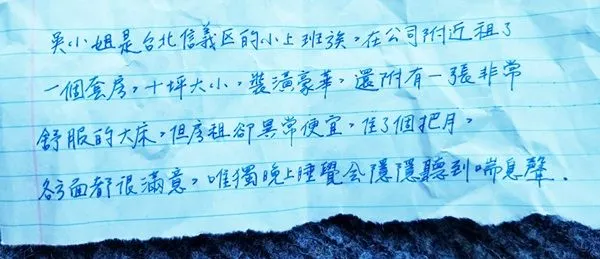 吳小姐是台北信義区的小上班族，在公司附近租了
一個套房，十坪大小，裝潢豪華，還附有一張非常
舒服的大床，但房租卻異常便宜，住了個把月，
各方面都很滿意，唯獨晚上睡覺会隱隱聽到喘息聲．